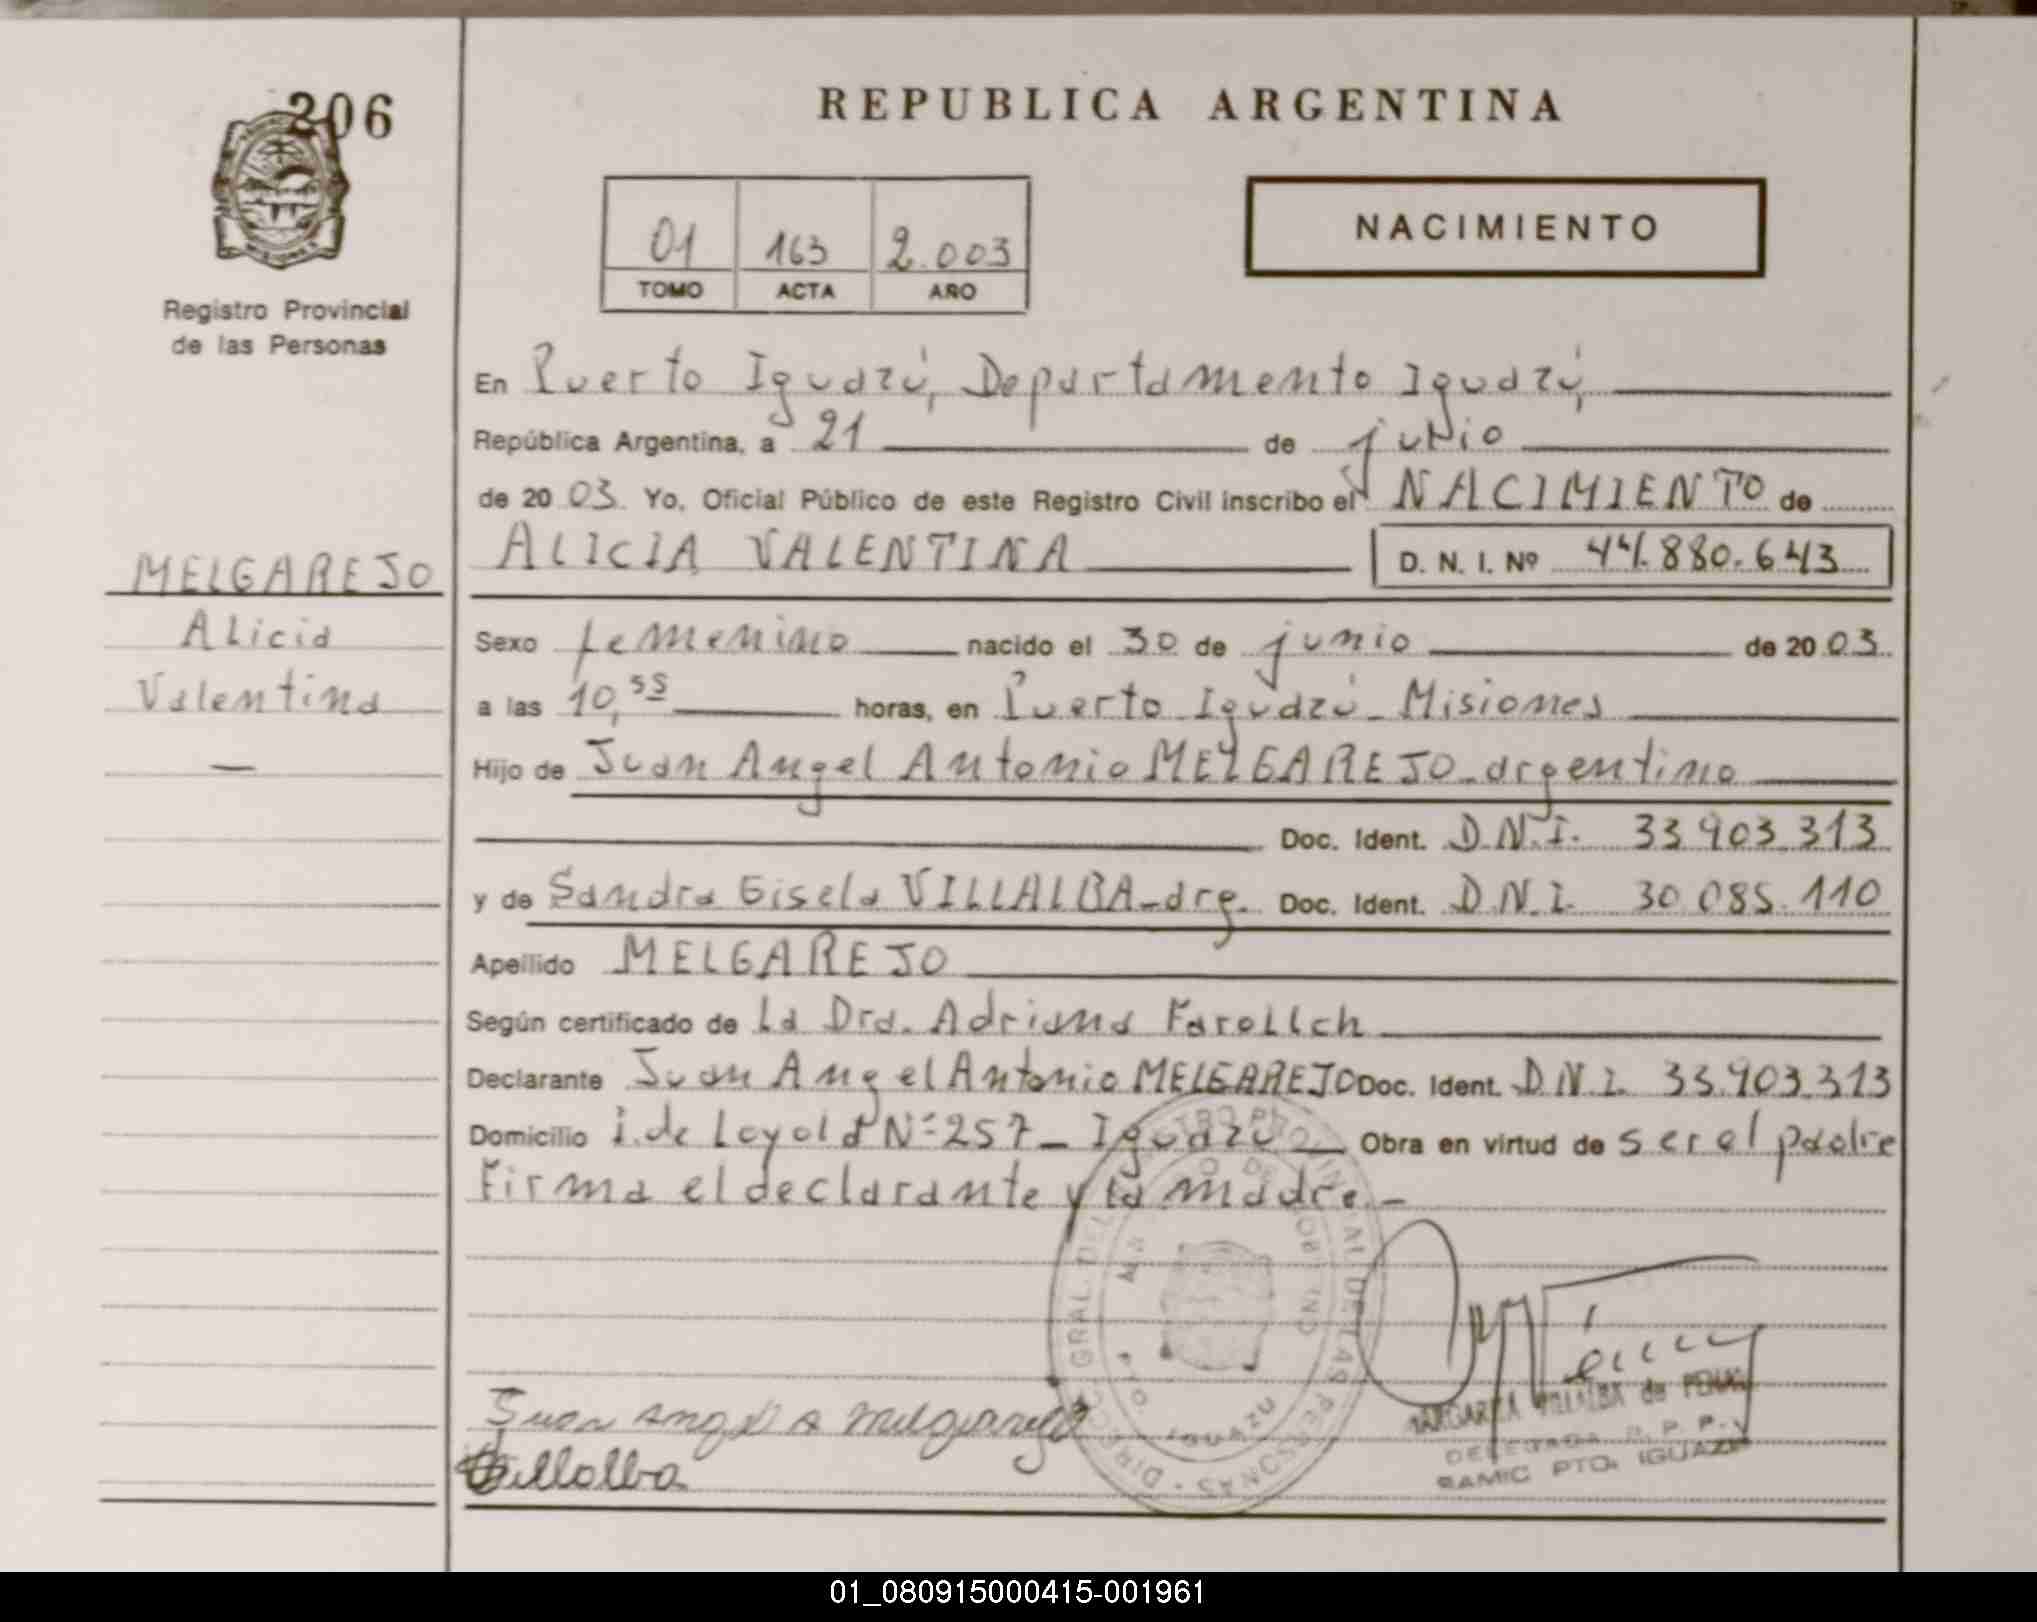 206
REPUBLICA ARGENTINA
NACIMIENTO
01 163 2.003
TOMO ACTA AÑO
Registro Provincial
de las Personas
En Puerto Iguazú, Departamento Iguazú,
República Argentina, a 21 de junio
de 20 03. Yo, Oficial Público de este Registro Civil inscribo el NACIMIENTO de
ALICIA VALENTINA D. N. I. Nº 44.880.643
MELGAREJO
Alicia
Valentina
—
Sexo femenino nacido el 30 de junio de 20 03.
a las 10,55 horas, en Puerto Iguazú - Misiones
Hijo de Juan Angel Antonio MELGAREJO - argentino
Doc. Ident. D.N.I. 33.903.313
y de Sandra Gisela VILLALBA - arg. Doc. Ident. D.N.I. 30.085.110
Apellido MELGAREJO
Según certificado de La Dra. Adriana
Declarante Juan Angel Antonio MELGAREJO Doc. Ident. D.N.I. 33.903.313
Domicilio i. de Loyola Nº 257 - Iguazú Obra en virtud de ser el padre
Firma el declarante y la madre.-
Juan Angel A Melgarejo
Villalba
MARGARITA VILLALBA de
DELEGADA R. P. P.
SAMIC PTO. IGUAZU
01_080915000415-001961